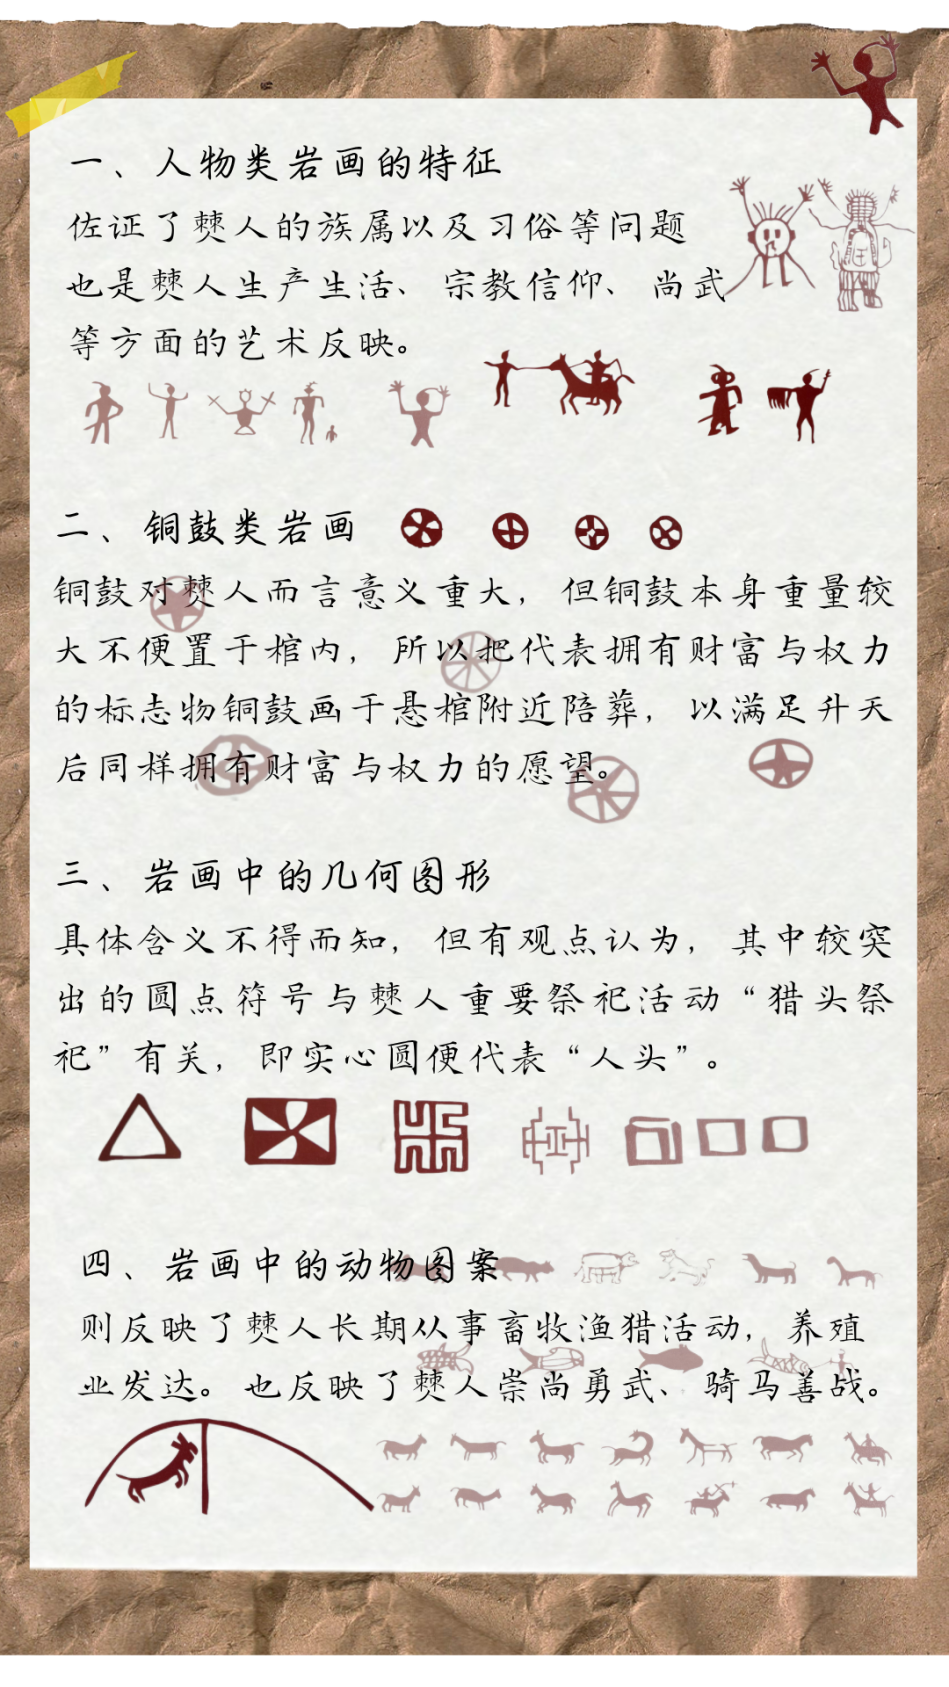 一、人物类岩画的特征
佐证了僰人的族属以及习俗等问题
也是僰人生产生活、宗教信仰、尚武
等方面的艺术反映。
二、铜鼓类岩画
铜鼓对僰人而言意义重大，但铜鼓本身重量较
大不便置于棺内，所以把代表拥有财富与权力
的标志物铜鼓画于悬棺附近陪葬，以满足升天
后同样拥有财富与权力的愿望。
三、岩画中的几何图形
具体含义不得而知，但有观点认为，其中较突
出的圆点符号与僰人重要祭祀活动“猎头祭
祀”有关，即实心圆便代表“人头”。
四、岩画中的动物图案
则反映了僰人长期从事畜牧渔猎活动，养殖
业发达。也反映了僰人崇尚勇武、骑马善战。